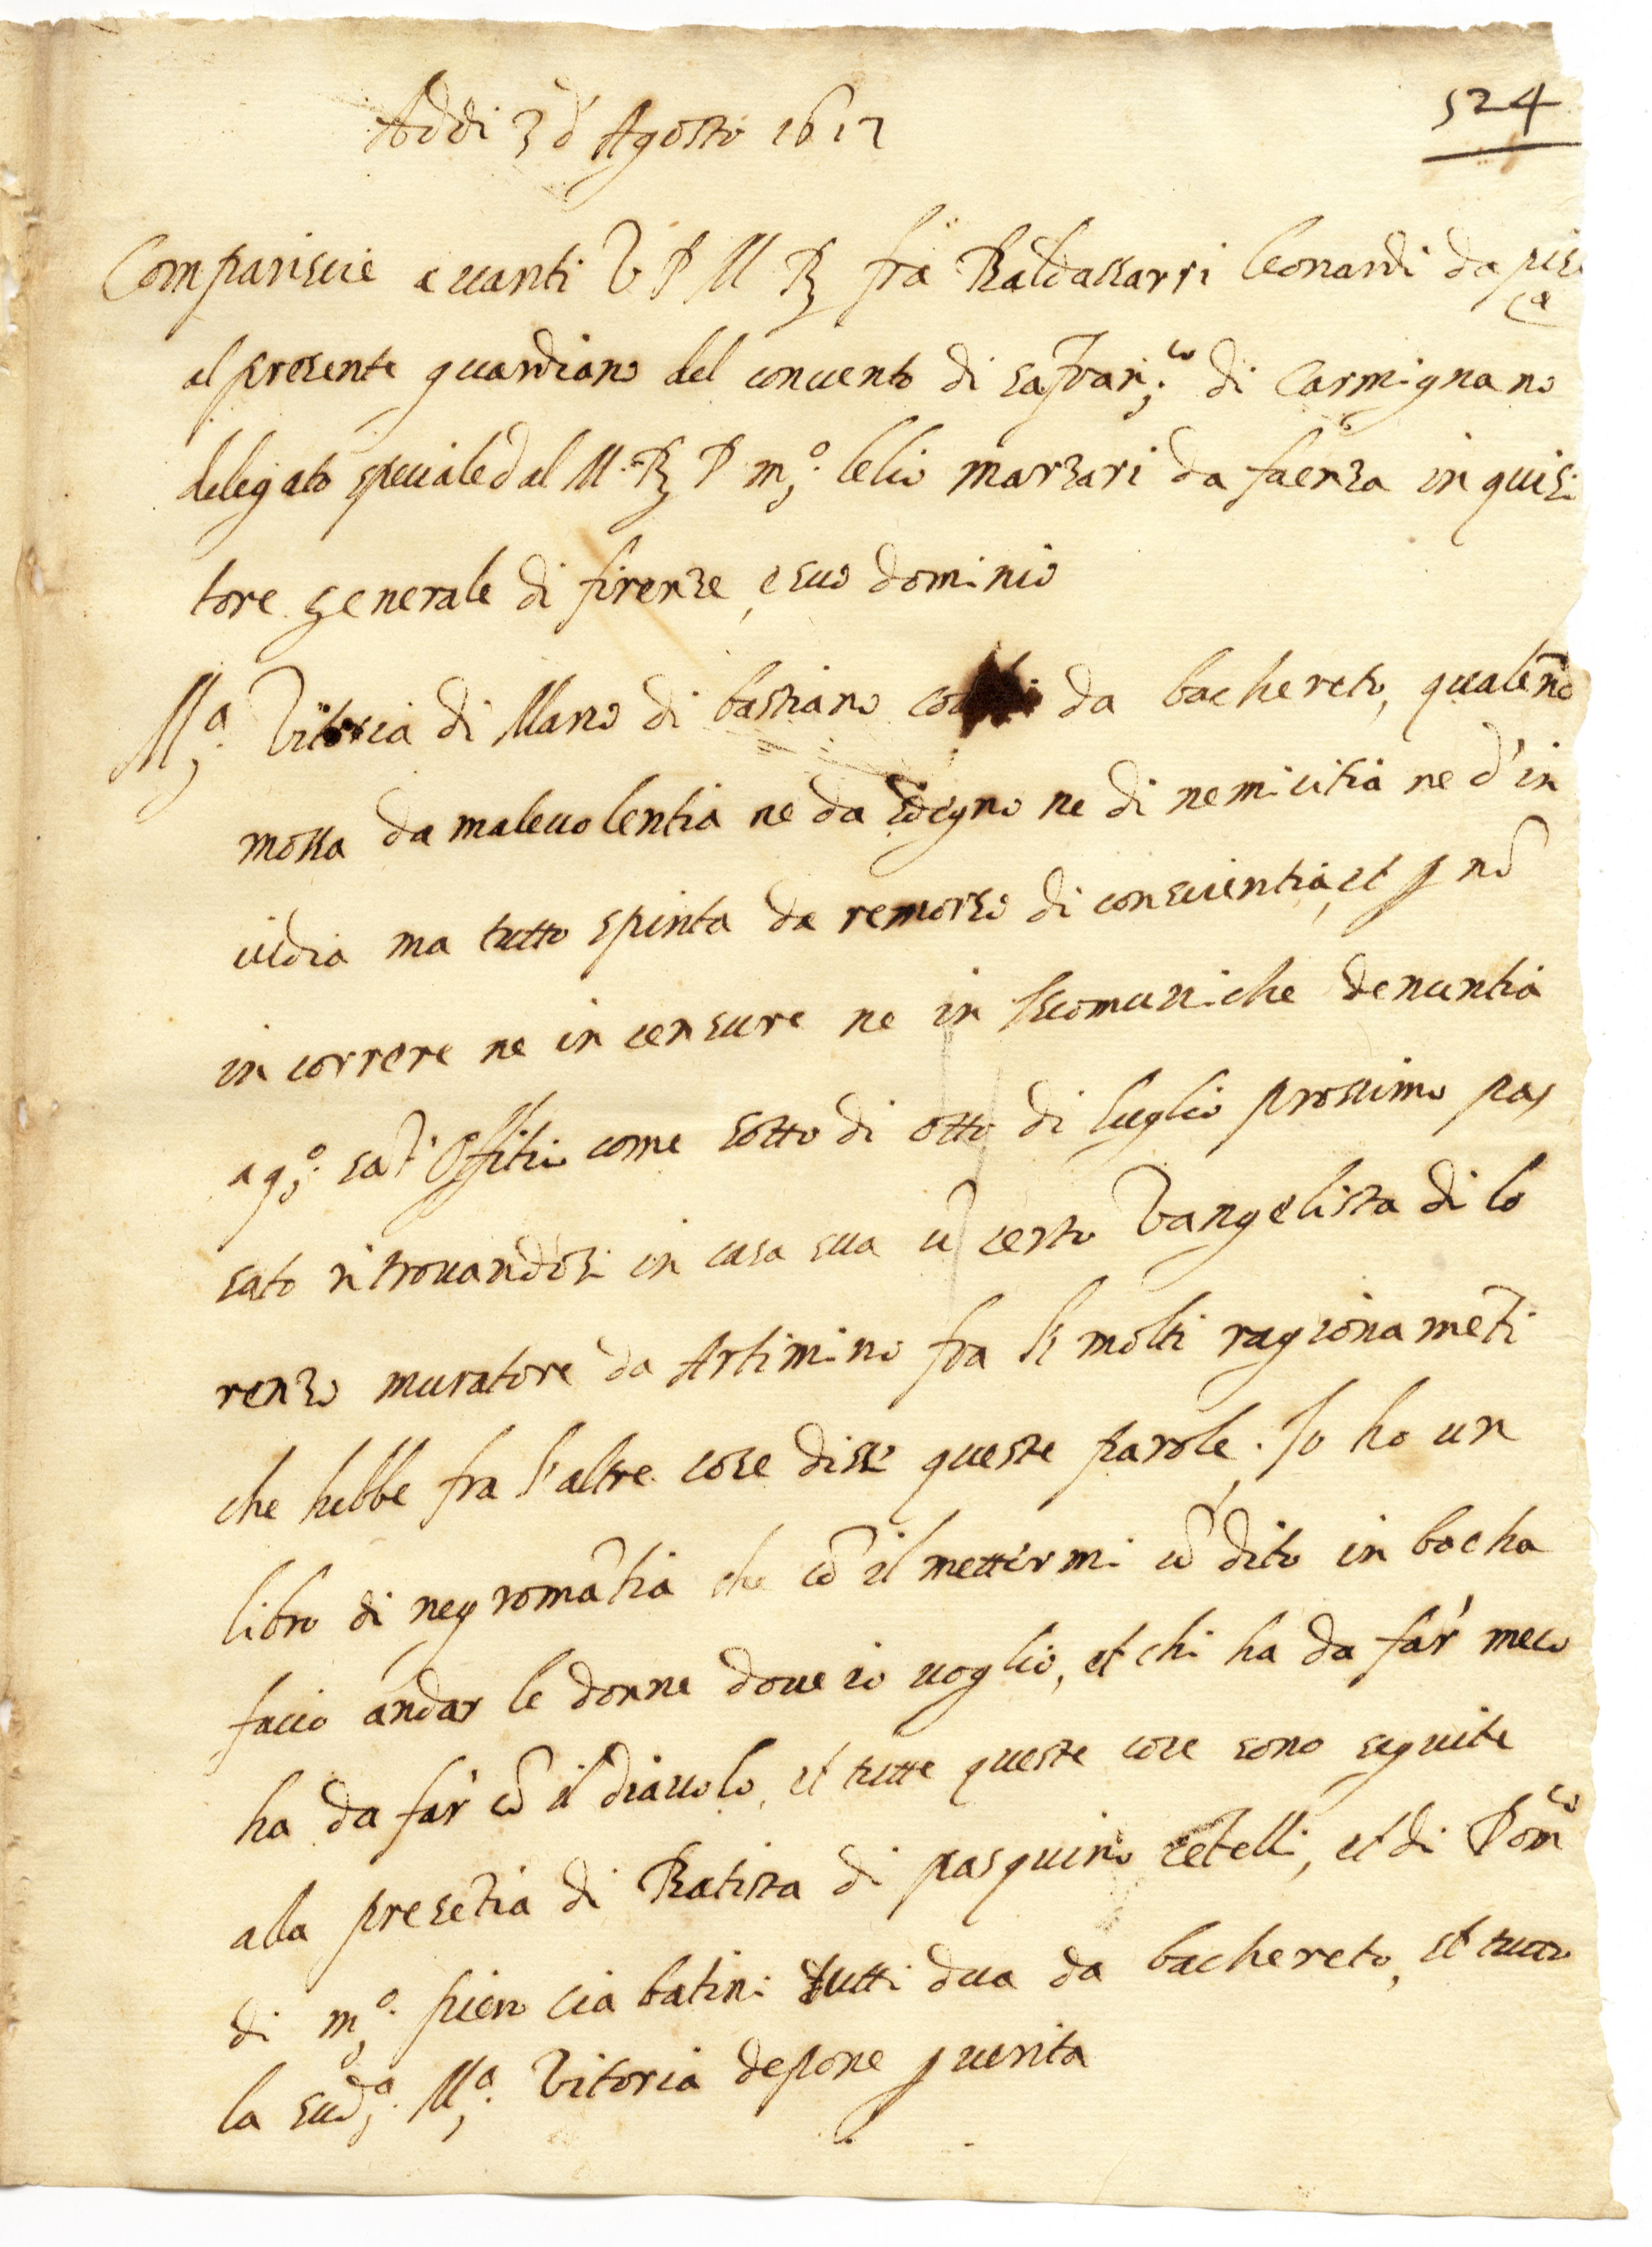 524
Addi 3 d' Agosto 1612
Compariscie avanti V P M R fra Baldassarri leonardi da pesca
al presente guardiano del convento di sa fran.co di Carmignano
delegato speciale dal M. R P m.o lelio marzari da faenza inquisi
tore generale di firenze e suo dominio
M.a Vitoria di Mario di bastiano da bachereto, quale nõ
mossa da malevolentia ne da sdegno ne di nemicitia ne d'in
vidia ma tutto spinta da remorso di conscientia, et p nõ
incorrere ne in censure ne in scomuniche denuntia
a q.o sãt' Offitio come sotto di otto di luglio prossimo pas
sato ritrovandosi in casa sua ũ certo Vangelista di lo
renzo muratore da Artimino fra li molti ragionamẽti
che hebbe fra l'altre cose disse queste parole. Io ho un
libro di negromãtia che cõ il mettermi ũ dito in bocha
facio andar le donne dove io voglio, et chi ha da far' meco
ha da far' cõ il diavolo, et tutte queste cose sono seguite
alla presẽtia di Batista di pasquino cẽtelli, et di Dom.co
di m.o piero ciabatini tutti dua da bachereto, et tutto
la sud.a M.a Vitoria depone p verita